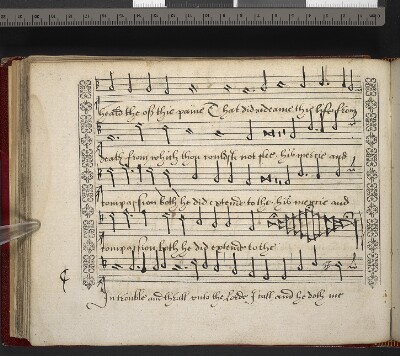 behold the off this paine That did redeame this life from
death from which thou couldst not flee his mercie and
compassion both he did extende to the his mercie and
compassion both he did extende to the
In trouble and thrall unto the Lorde I call and he doth me